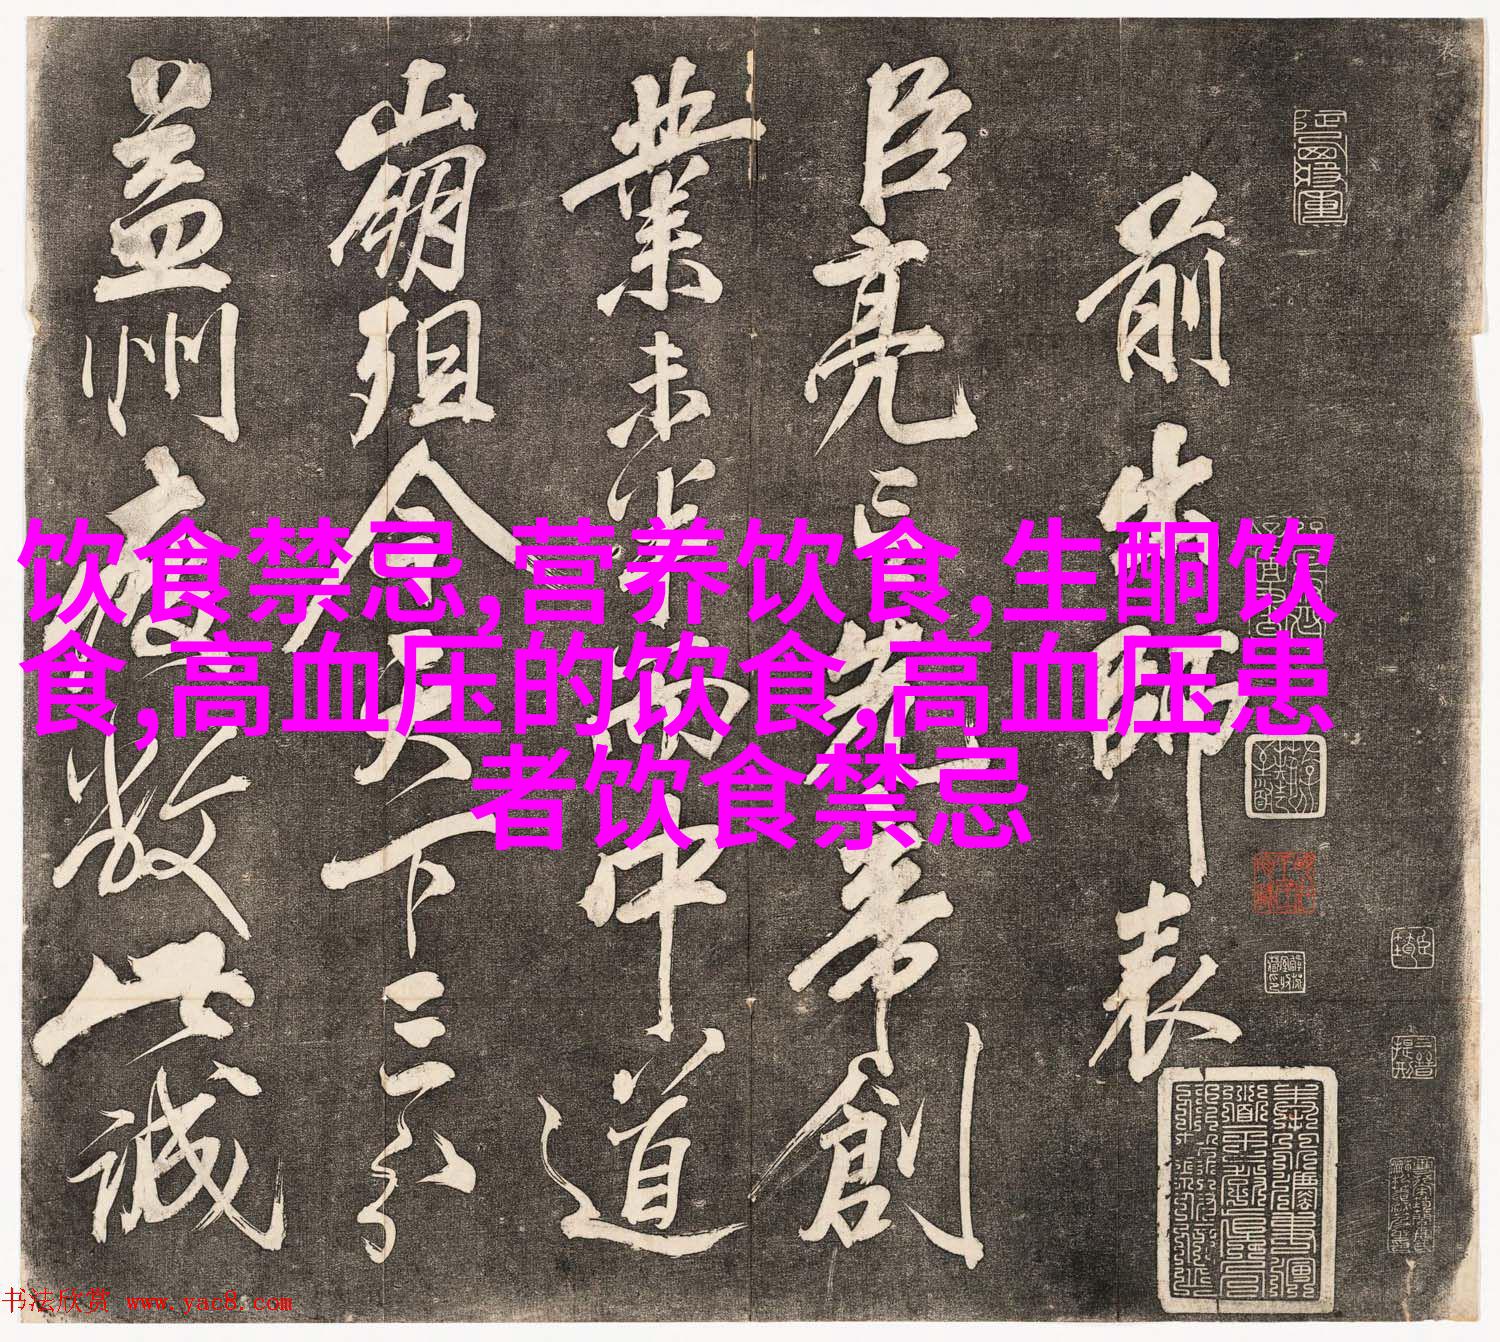 前出師表
臣亮言先帝創
業未半而中道
崩殂今天下三分
益州疲敝此誠
饮食禁忌,营养饮食,生酮饮
食,高血压的饮食,高血压患
者饮食禁忌
书法欣赏 www.yac8.com